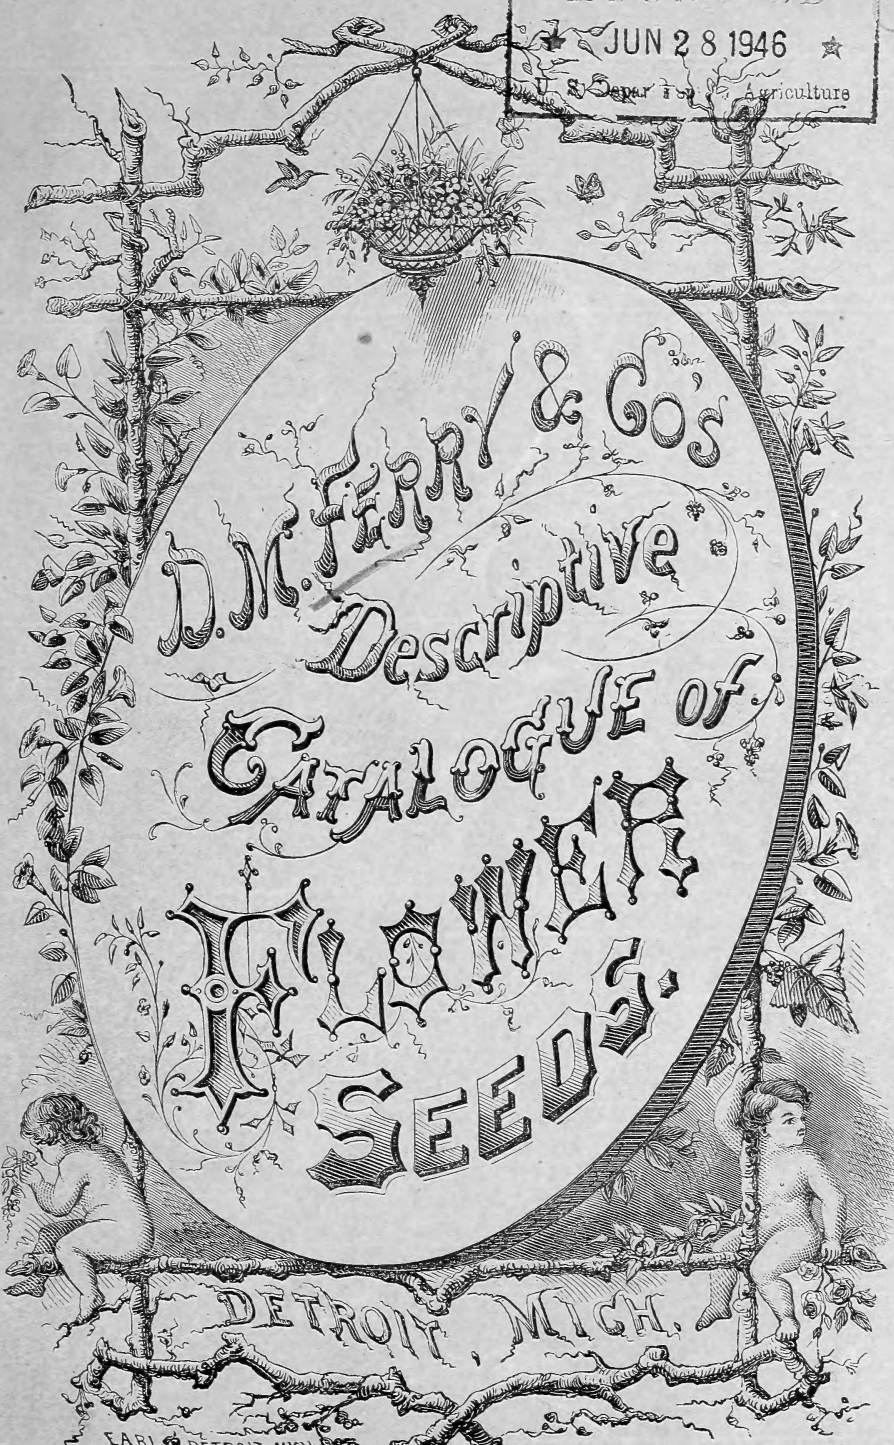 JUN 28 1946
U. S. Depar Agriculture
D. M. FERRY & CO'S
Descriptive
CATALOGUE of
FLOWER
SEEDS.
DETROIT, MICH.
DETROIT